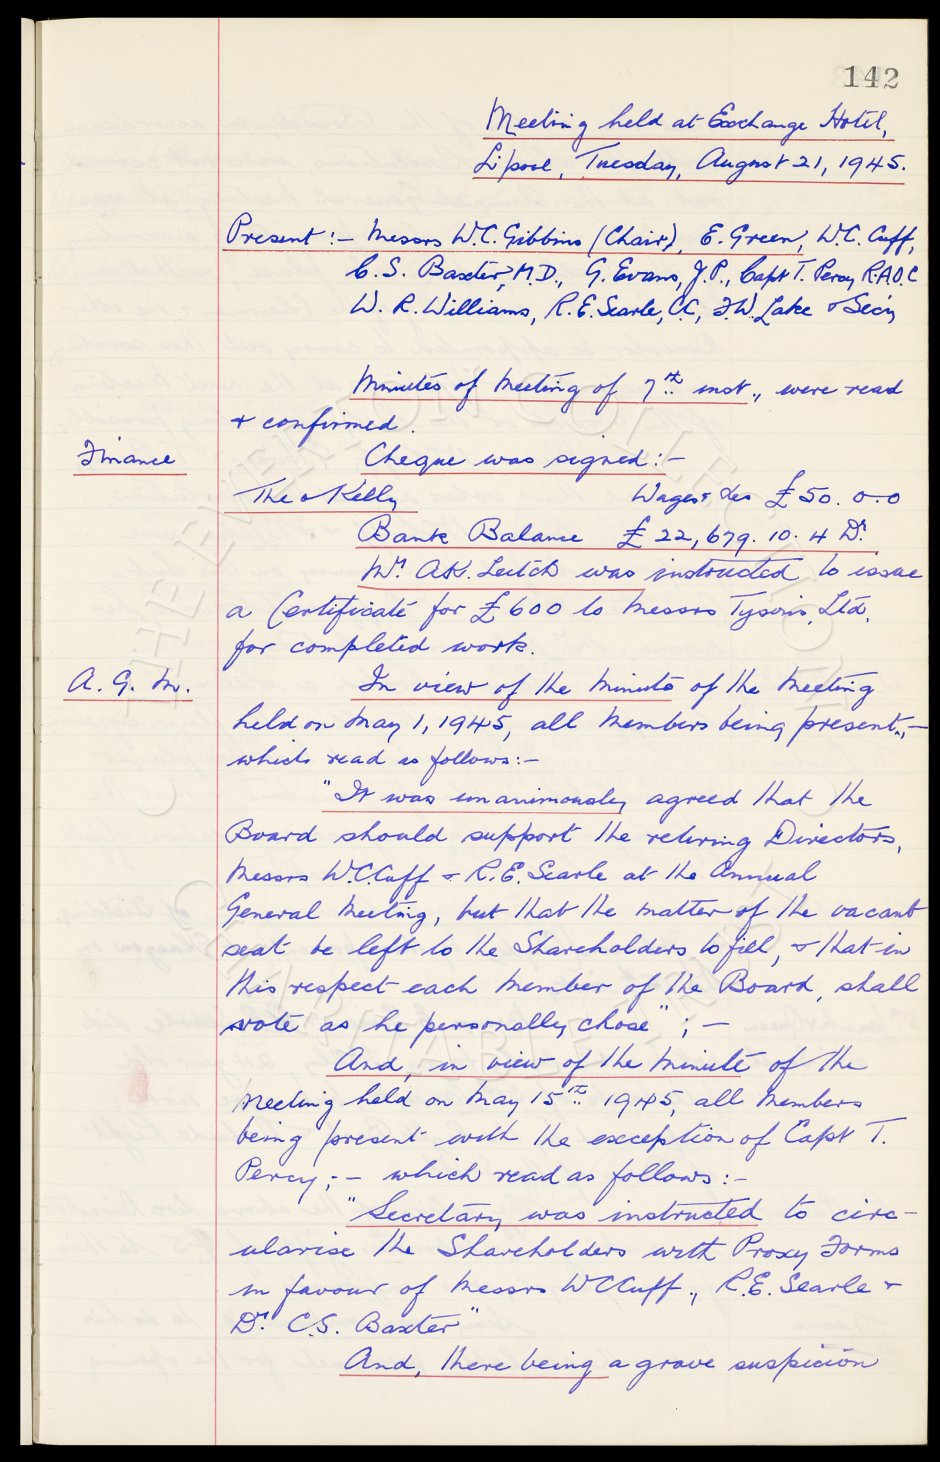 142
Meeting held at Exchange Hotel,
L'pool, Tuesday, August 21, 1945.
Present :- Messrs W.C. Gibbins (Chair), E. Green, W.C. Cuff,
C.S. Baxter, M.D., G. Evans, J.P., Capt T. Percy R.A.O.C
W. R. Williams, R.E. Searle, C.C, F.W. Lake & Sec'y
Minutes of Meeting of 7th inst., were read
& confirmed.
Finance
Cheque was signed :-
Theo Kelly Wages &c £50. 0. 0
Bank Balance £22,679. 10. 4 Dr.
Mr. A.K. Leitch was instructed to issue
a Certificate for £600 to Messrs Tysons, Ltd.
for completed work.
A. G. M.
In view of the Minute of the Meeting
held on May 1, 1945, all Members being present, ; -
which read as follows :-
"It was unanimously agreed that the
Board should support the retiring Directors,
Messrs W.C. Cuff & R.E. Searle at the Annual
General Meeting, but that the matter of the vacant
seat be left to the Shareholders to fill, & that in
this respect each Member of the Board, shall
vote as he personally chose" ; -
And, in view of the Minute of the
Meeting held on May 15th 1945, all Members
being present with the exception of Capt T.
Percy ; - which read as follows :-
"Secretary was instructed to circ-
ularise the Shareholders with Proxy Forms
in favour of Messrs W C Cuff., R.E. Searle &
Dr. C.S. Baxter"
And, there being a grave suspicion
THE EVERTON COLLECTION
CHARITABLE TRUST